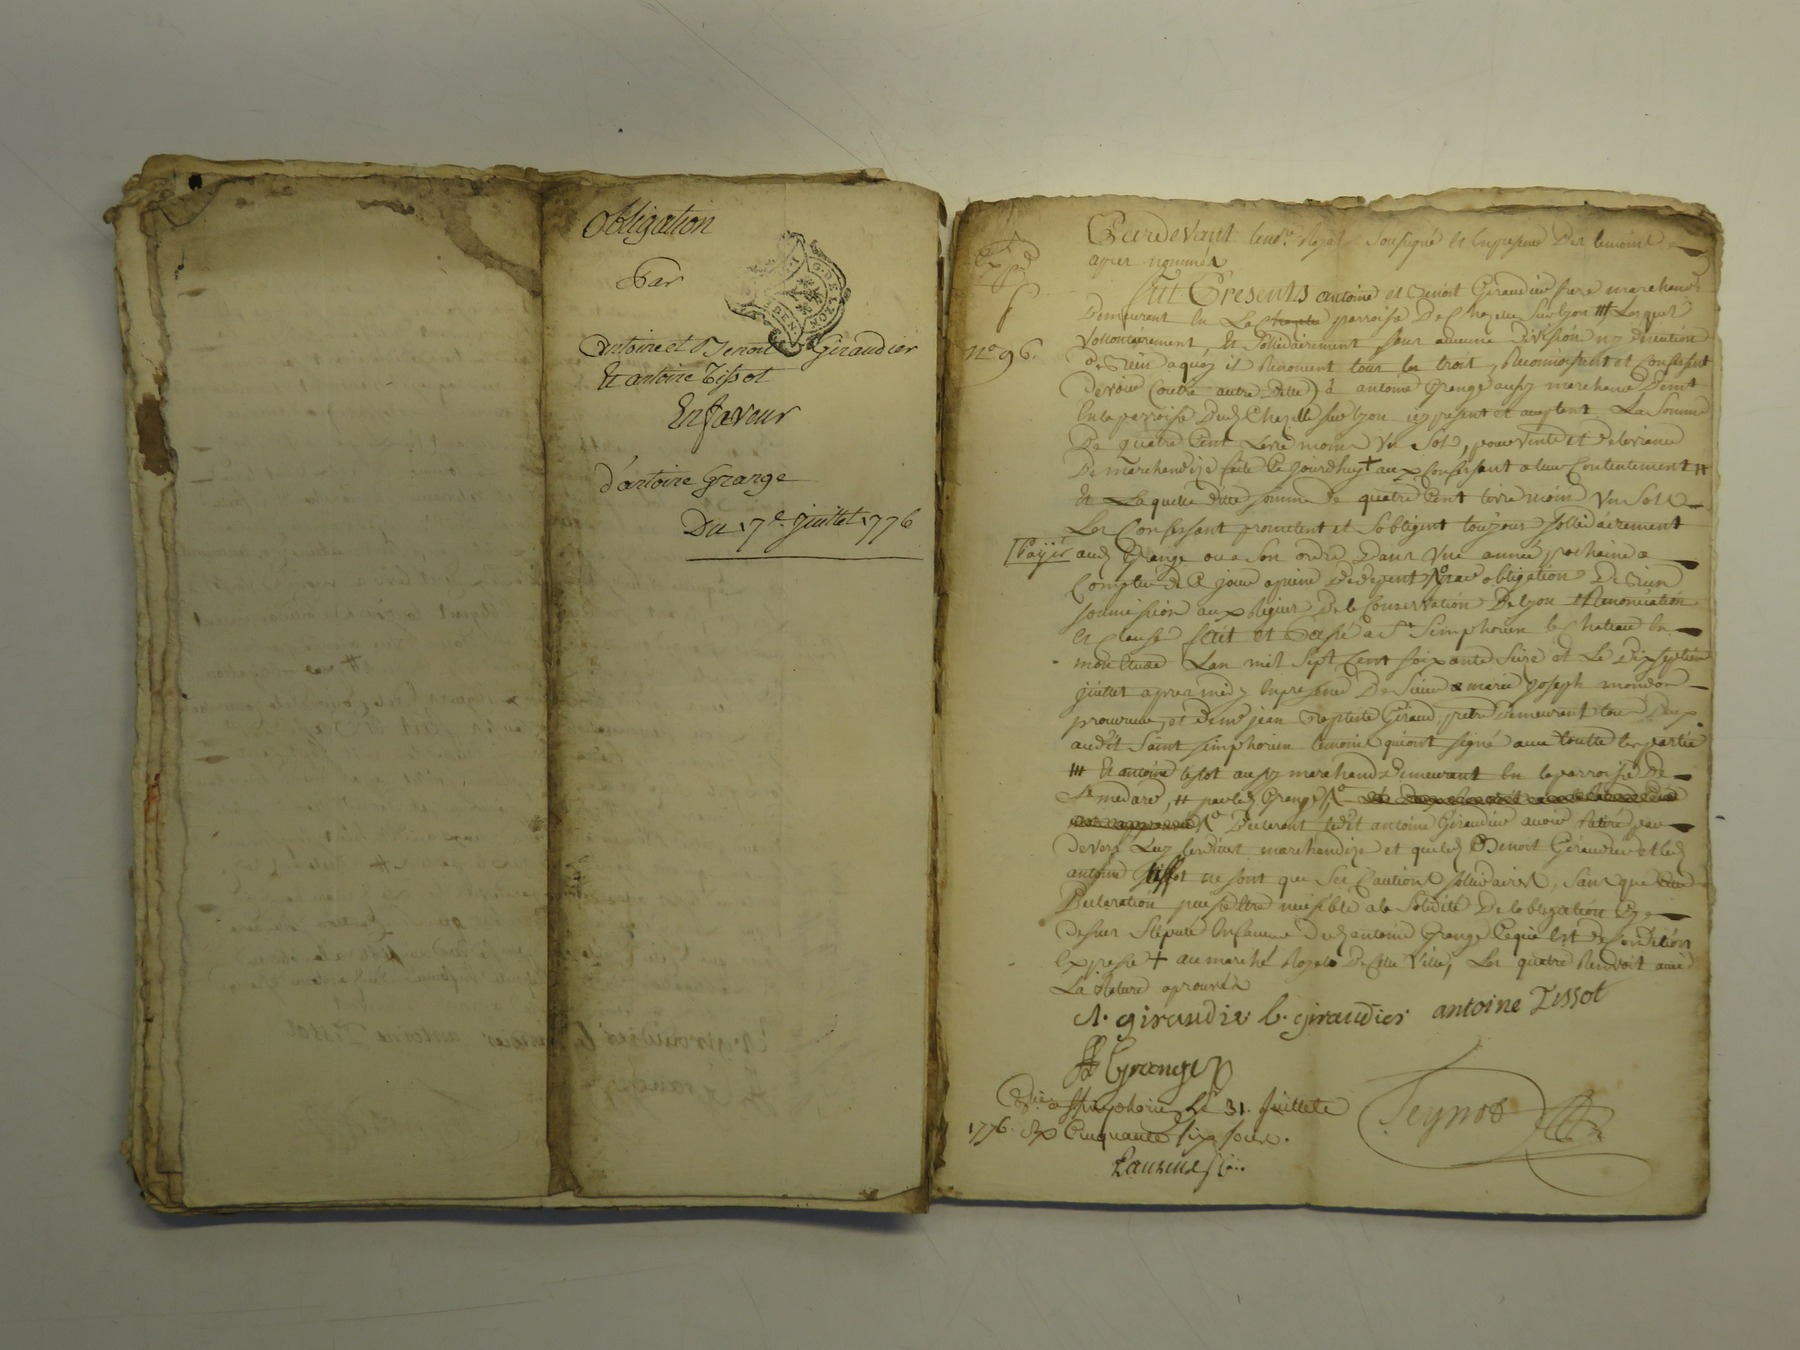 Obligation
Par
Antoine et Benoit Giraudier
Et antoine Tissot
En faveur
d'antoine Grange
Du 17e. juillet 1776
G. DE LYON
GEN.
Pardevant le no.re Royal Soussigné et En presence Des temoins
apres nommés
n° 96.
fut Présents antoine et Benoit Giraudier frere marchands
Demeurant En La parroisse De Chazelle Sur lyon ╫ Lesquels
vollontairement, Et Sollidairement Sans aucune Division ny Discution
De Bien aquoy il Renoncent tous les trois, Reconnoissent et Confessent
Devoir (outre autre Dette) à antoine Grange aussy marchand Demt
En la parroisse Dud Chazelle sur lyon icy present et aceptant La Somme
De quatre Cent Livre moins Un Sol, pour vente et Delivrance
De marchandize faite Ce jourdhuy + aux Confessant a leur Contentement #
Et Laquelle ditte somme de quatre Cent livre moins Un Sol
Les Confessant prometent et Sobligent toujours Sollidairement
Payer aud Grange ou a Son ordre Dans Une année prochaine a
Compter de Ce jour apeine De Depent, par obligation De Biens
soumission aux Rigueurs De la Conservation De lyon Renonciation
et Clauses fait et Passé a St. Simphorien le Chateau En
mon Etude Lan mil Sept Cent soixante Seize et Le Dix septieme
juillet apres midy En presence De Sieur marie joseph mondon
procureur, et De mr jean Baptiste Giraud, pretre Demeurant tous Deux
audit Saint simphorien temoins qui ont signé avec toutte les partie
╫ Et antoine tissot aussy marchand Demeurant En la parroisse De
St medard, # par led Grange,
Declarant ledit antoine Giraudier avoir Retiré par
Devers Luy lesdittes marchandize et queled Benoit Giraudier et led
antoine tissot ne sont que Ses Cautions sollidaires, Sans que
Declaration puisse Etre nuisible a la Solidité De lobligation Cy
Dessus Stipulé En faveur Dud antoine Grange Ce qui Est de Condition
Expresse + au marché Royale De Cette Ville, Les quatre Renvoit avec
La Rature aprouvés
A. giraudie b. giraudier antoine Tissot
Grange
Teynod
31. juillet
1776. Cinquante six sous.